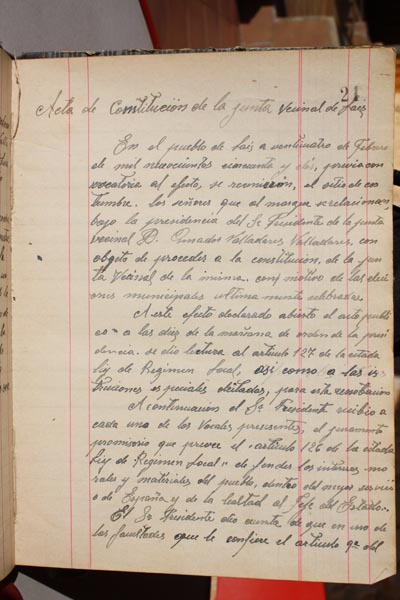 21
Acta de Constitución de la Junta Vecinal de
En el pueblo de a veinticuatro de Febrero
de mil novecientos cincuenta y dos, previa con
vocatoria al efecto, se reunieron, el sitio de cos
tumbre. los señores que al margen se relacionan,
bajo la presidencia del Sr Presidente de la junta
vecinal D. Amador Valladares Valladares, con
objeto de proceder a la constitución. de la jun
ta Vecinal de la misma. con motivo de las elec
ciones municipales ultima mente celebradas.
A este efecto declarado abierto el acto publi
co a las diez de la mañana de orden de la presi
dencia. se dio lectura al articulo 127 de la citada
ley de Regimen Local, así como a las ins
truciones especiales dictadas, para esta
A continuacion el Sr Presidente recibio a
cada uno de los Vocales presentes, el juramento
promisorio que preveé el articulo 126 de la citada
Ley de Regimen Local de fender los intereses mo
rales y materiales del pueblo, dentro del mejor servici
o de España y de la lealtad al Jefe del Estado.
El Sr Presidente dio cuenta de que en uno de
las facultades que le confiere el articulo 9º del